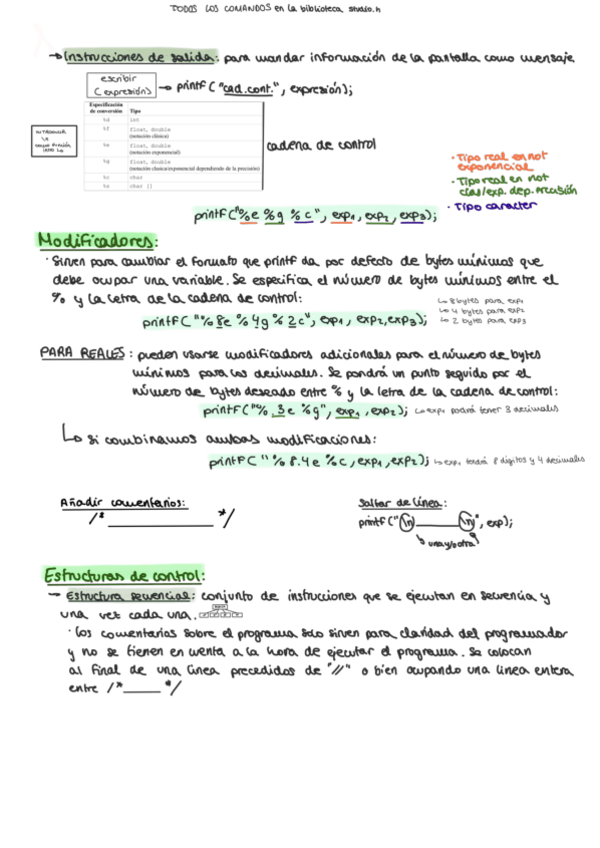 TODOS LOS COMANDOS en la biblioteca studio.h
→ Instrucciones de salida: para mandar información de la pantalla como mensaje
escribir
(expresión)
→ printf ("cad.cont.", expresión);
Especificación de conversión Tipo
%d int
%f float, double
(notación clásica)
%e float, double
(notación exponencial)
%g float, double
(notación clásica/exponencial dependiendo de la precisión)
%c char
%s char []
cadena de control
· Tipo real en not
exponencial
· Tipo real en not
clas/exp. dep. precisión
· Tipo caracter
printf("%e %g %c", exp1, exp2, exp3);
Modificadores:
· Sirven para cambiar el formato que printf da por defecto de bytes mínimos que
debe ocupar una variable. Se especifica el número de bytes mínimos entre el
% y la letra de la cadena de control:
printf("%8e %4g %2c", exp1, exp2, exp3);
↳ 8 bytes para exp1
↳ 4 bytes para exp2
↳ 2 bytes para exp3
PARA REALES: pueden usarse modificadores adicionales para el número de bytes
mínimos para los decimales. Se pondrá un punto seguido por el
número de bytes deseado entre % y la letra de la cadena de control:
printf("%.3e %g", exp1, exp2); ↳ exp1 podrá tener 3 decimales
↳ Si combinamos ambas modificaciones:
printf(" %8.4e %c, exp1, exp2); ↳ exp1 tendrá 8 dígitos y 4 decimales
Añadir comentarios:
/* ____________ */
Saltar de línea:
printf("\n______\n", exp);
↳ una y/o otra
Estructuras de control:
→ Estructura secuencial: conjunto de instrucciones que se ejecutan en secuencia y
una vez cada una.
· Los comentarios sobre el programa solo sirven para claridad del programador
y no se tienen en cuenta a la hora de ejecutar el programa. Se colocan
al final de una línea precedidos de "//" o bien ocupando una línea entera
entre /*_____*/